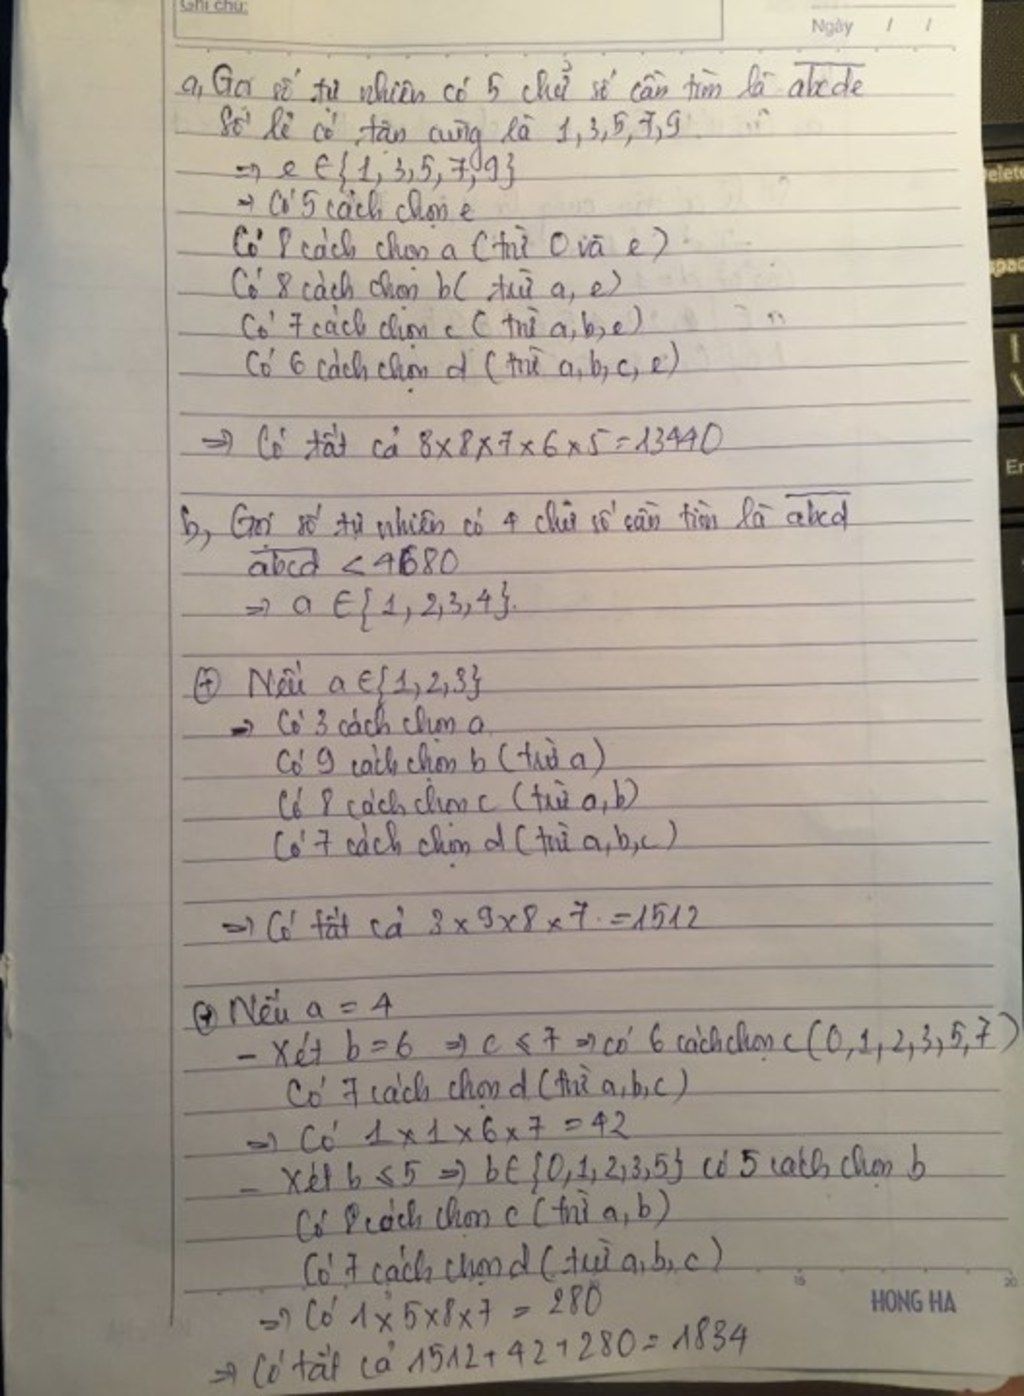 Ghi chú:
Ngày / /
a, Gọi số tự nhiên có 5 chữ số cần tìm là abcde
Số lẻ có tân cùng là 1,3,5,7,9
⇒ e ∈ {1,3,5,7,9}
⇒ Có 5 cách chọn e
Có 8 cách chọn a (trừ 0 và e)
Có 8 cách chọn b (trừ a, e)
Có 7 cách chọn c (trừ a,b,e)
Có 6 cách chọn d (trừ a,b,c,e)
⇒ Có tất cả 8×8×7×6×5=13440
b, Gọi số tự nhiên có 4 chữ số cần tìm là abcd
abcd < 4680
⇒ a ∈ {1,2,3,4}.
+ Nếu a ∈ {1,2,3}
⇒ Có 3 cách chọn a
Có 9 cách chọn b (trừ a)
Có 8 cách chọn c (trừ a,b)
Có 7 cách chọn d (trừ a,b,c)
⇒ Có tất cả 3×9×8×7 =1512
+ Nếu a = 4
- Xét b=6 ⇒ c ≤ 7 ⇒ có 6 cách chọn c (0,1,2,3,5,7)
Có 7 cách chọn d (trừ a,b,c)
⇒ Có 1×1×6×7 =42
- Xét b ≤ 5 ⇒ b ∈ {0,1,2,3,5} có 5 cách chọn b
Có 8 cách chọn c (trừ a,b)
Có 7 cách chọn d (trừ a,b,c)
⇒ Có 1×5×8×7 = 280
⇒ Có tất cả 1512+42+280=1834
15 20
HONG HA